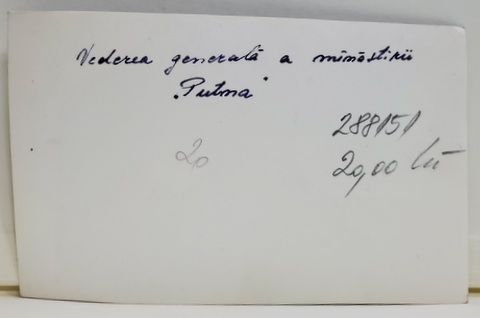 Vederea generală a mînăstirii
„Putna"
288151
20
20,00 lei